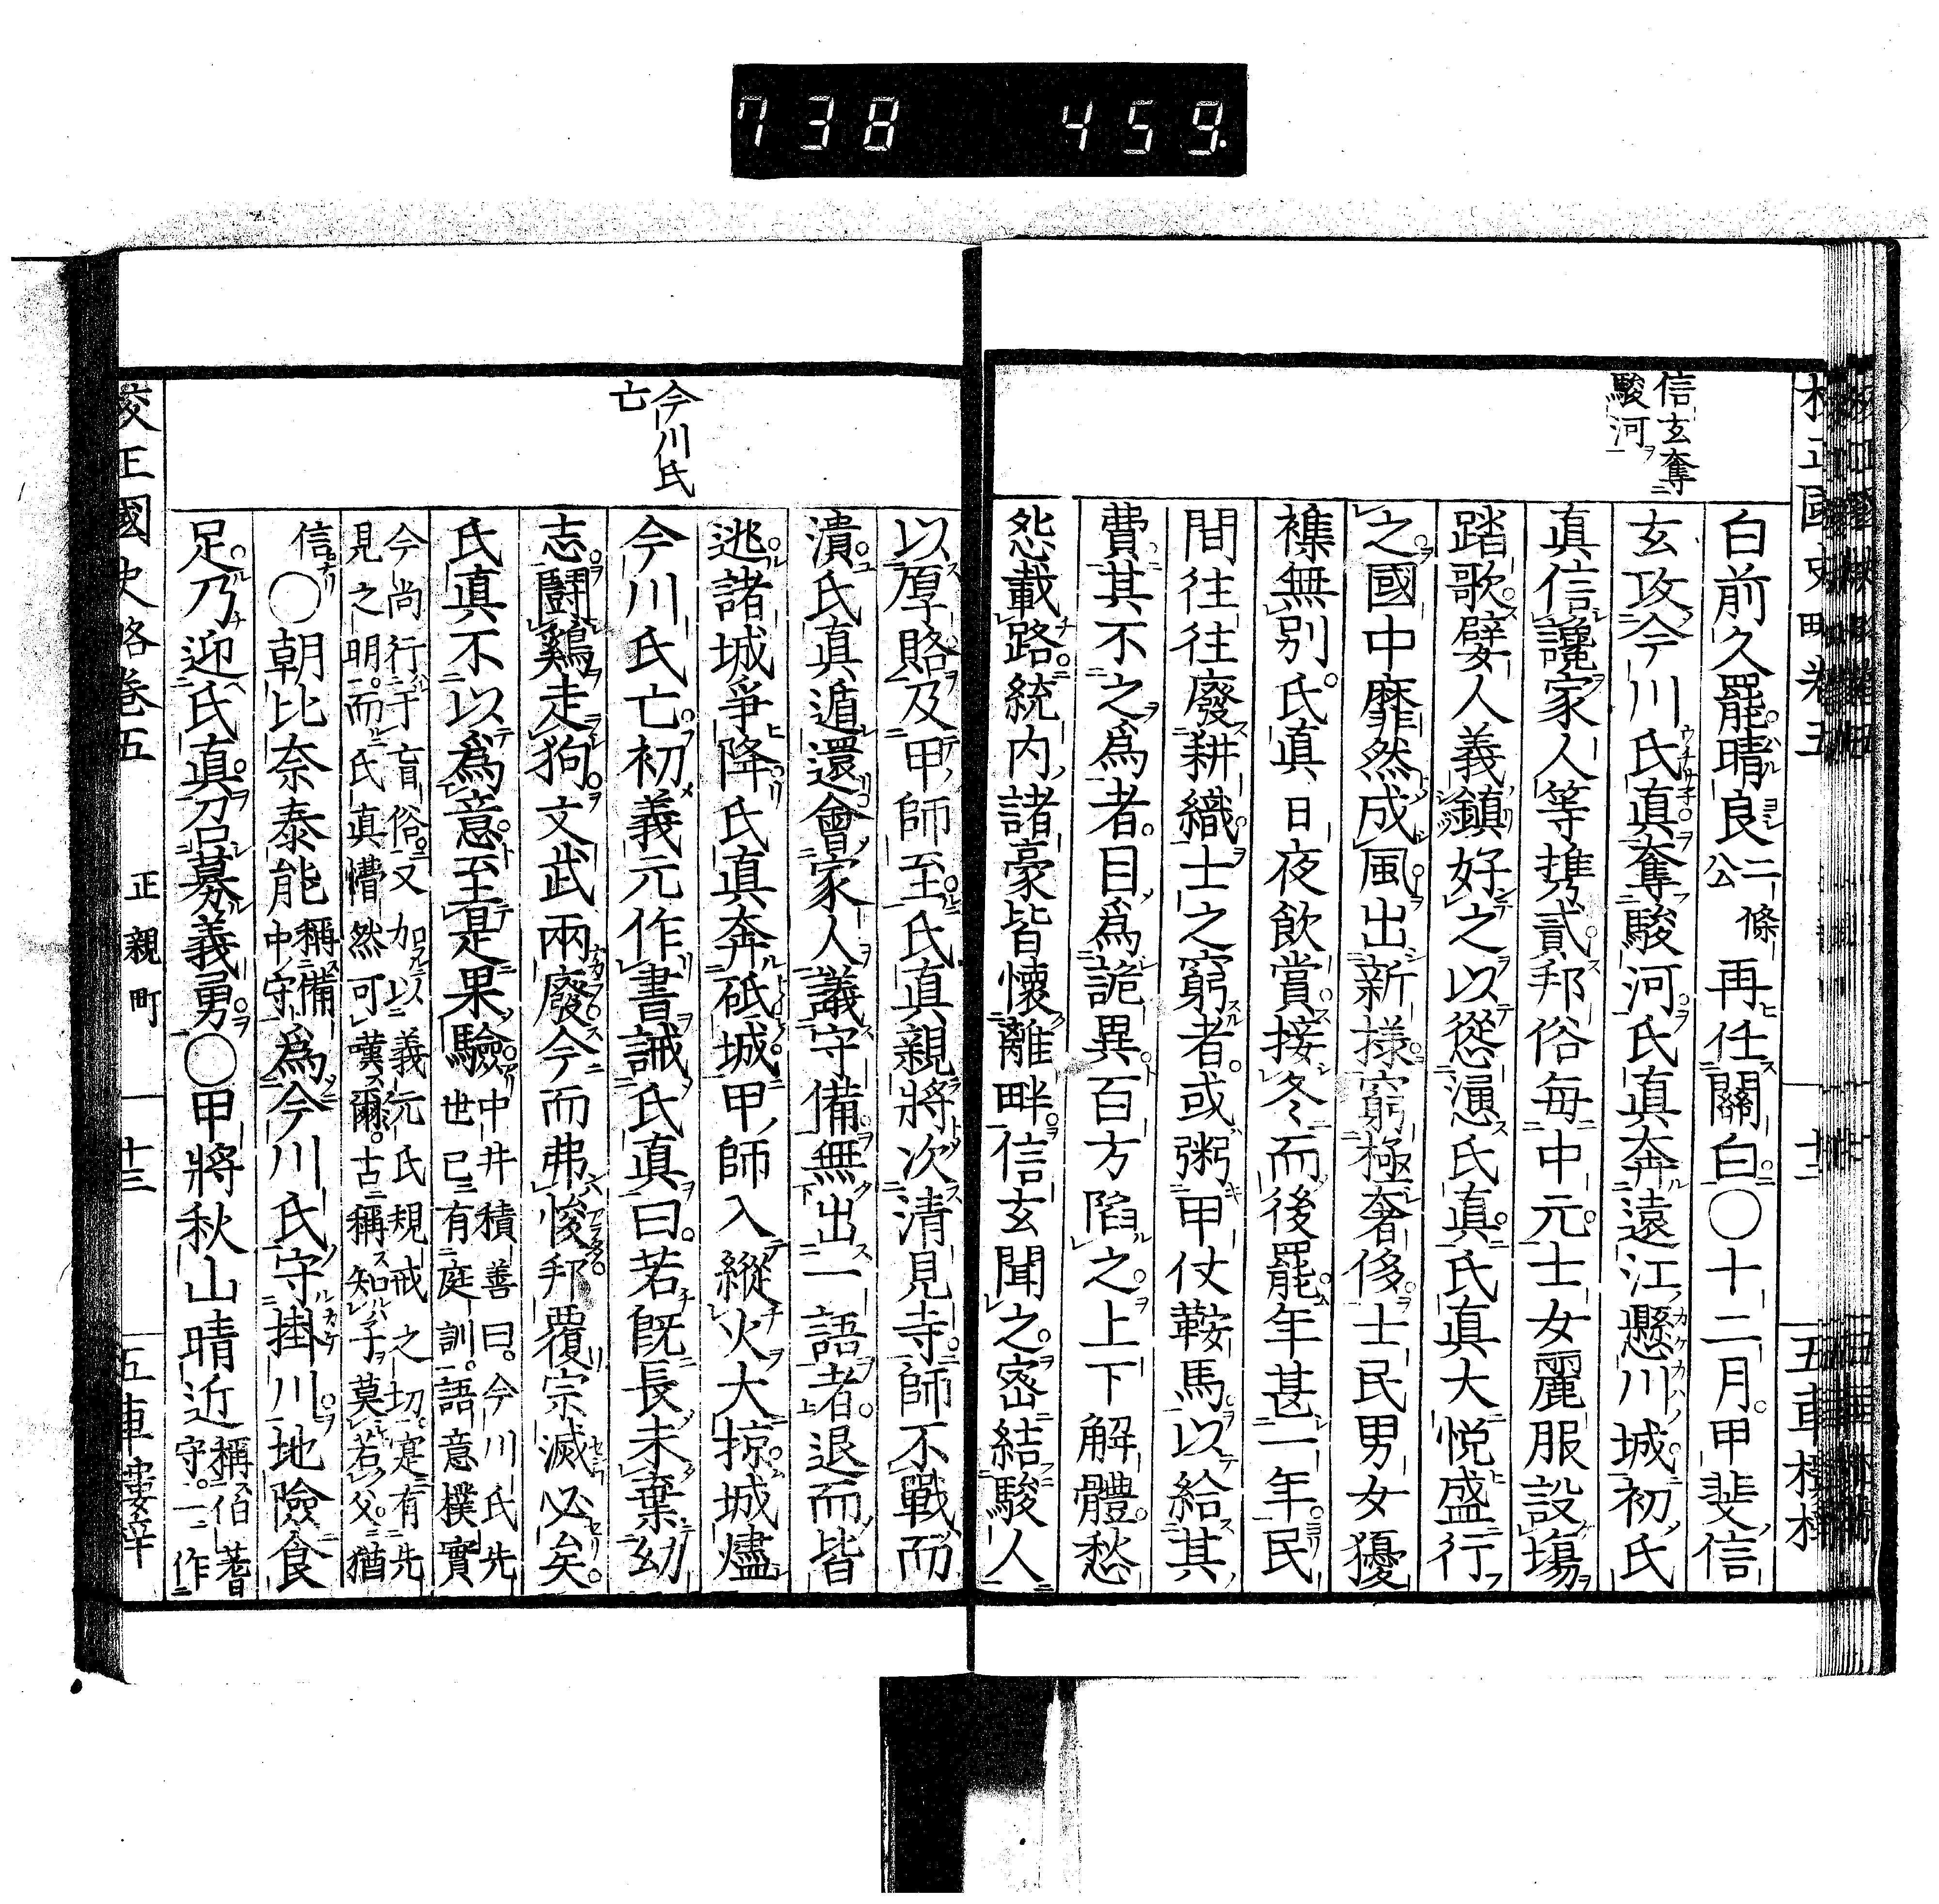 738 459.
信玄奪
駿河
白前久罷晴良二條公再任關白○十二月甲斐信
玄攻今川氏真奪駿河氏真奔遠江懸川城初氏
真信讒家人等攜貳邦俗每中元士女麗服設場
踏歌嬖人義鎮好之以慫慂氏真氏真大悅盛行
之國中靡然成風出新樣窮極奢侈士民男女獶
襍無別氏真日夜飲賞接冬而後罷年甚一年民
間往往廢耕織士之窮者或粥甲仗鞍馬以給其
費其不之為者目為詭異百方陷之上下解體愁
怨載路統內諸豪皆懷離畔信玄聞之密結駿人
今川氏
亡
以厚賂及甲師至氏真親將次清見寺師不戰而
潰氏真遁還會家人議守備無出一語者退而皆
逃諸城爭降氏真奔砥城甲師入縱火大掠城燼
今川氏亡初義元作書誡氏真曰若既長未棄幼
志鬪鷄走狗文武兩廢今而弗悛邦覆宗滅必矣
氏真不以為意至是果驗中井積善曰今川氏先世已有庭訓語意樸實
今尚行于盲俗又加以義元氏規戒之切寔有先見之明而氏真懵然可嘆爾古稱知子莫若父猶
信○朝比奈泰能稱備中守為今川氏守掛川地險食
足乃迎氏真召募義勇○甲將秋山晴近稱伯耆守一作
校正國史略卷五 正親町 十三 五車樓梓